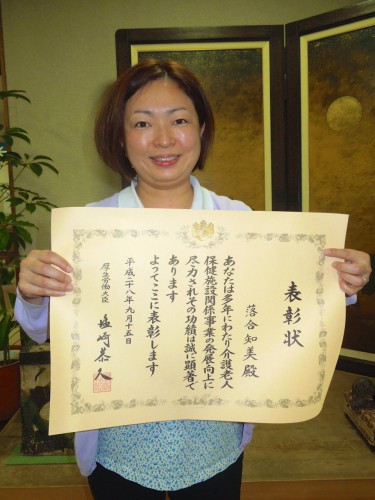 表彰状
落合知美殿
あなたは多年にわたり介護老人
保健施設関係事業の発展向上に
尽力されその功績は誠に顕著で
あります
よってここに表彰します
平成二十八年九月十五日
厚生労働大臣
塩崎恭久